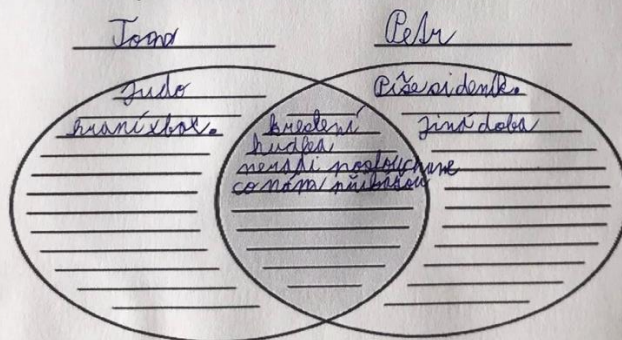 Tom
Petr
Judo
hraníxbox.
kreslení
hudba
neradi posloucháme
co nám přikážou
Píše si deník.
Jiná doba